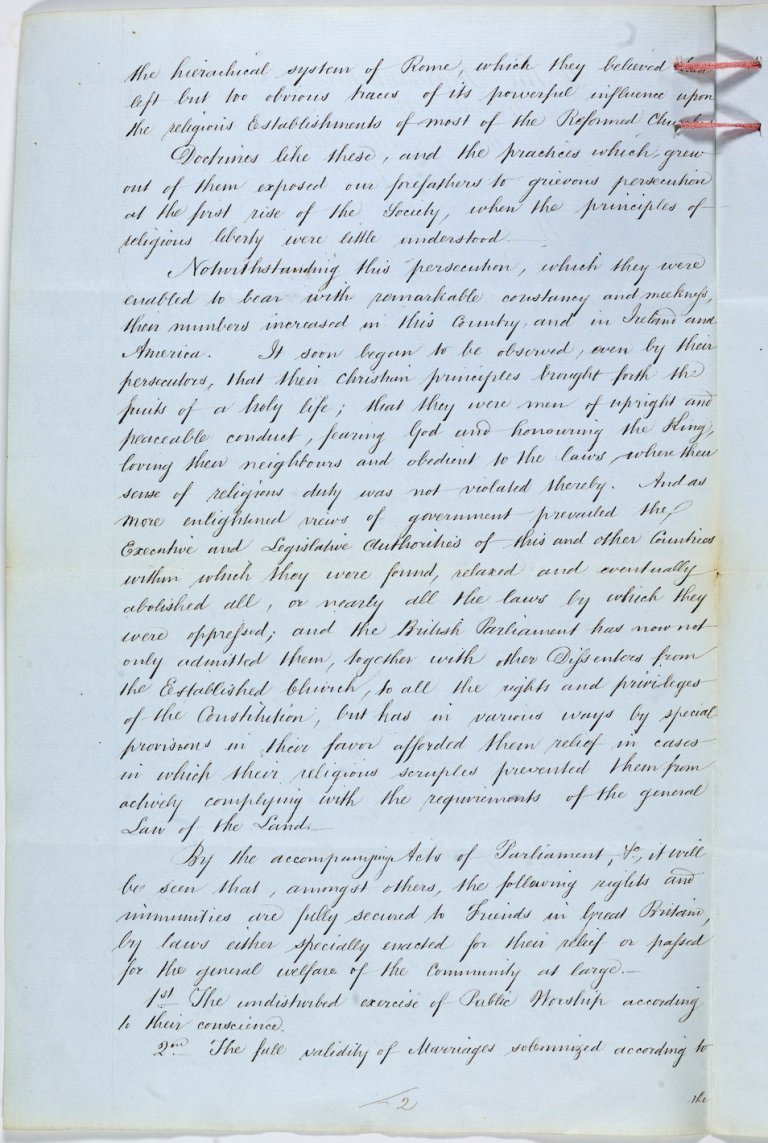 the hierachical system of Rome, which they believed had
left but too obvious traces of its powerful influence upon
the religious Establishments of most of the Reformed
Doctrines like these, and the practices which grew
out of them exposed our forefathers to grievous persecution
at the first rise of the Society, when the principles of
religious liberty were little understood.
Notwithstanding this persecution, which they were
enabled to bear with remarkable constancy and meekness,
their numbers increased in this Country, and in Ireland and
America. It soon began to be observed, even by their
persecutors, that their Christian principles brought forth the
fruits of a holy life; that they were men of upright and
peaceable conduct, fearing God and honouring the King,
loving their neighbours and obedient to the laws where their
sense of religious duty was not violated thereby. And as
more enlightened views of government prevailed the
Executive and Legislative Authorities of this and other Countries
within which they were found, relaxed and eventually
abolished all, or nearly all the laws by which they
were oppressed; and the British Parliament has now not
only admitted them, together with other Dissenters from
the Established Church, to all the rights and privileges
of the Constitution, but has in various ways by special
provisions in their favor afforded them relief in cases
in which their religious scruples prevented them from
actively complying with the requirements of the general
Law of the Land.
By the accompanying Acts of Parliament, &c, it will
be seen that, amongst others, the following rights and
immunities are fully secured to Friends in Great Britain,
by laws either specially enacted for their relief or passed
for the general welfare of the Community at large.
1st The undisturbed exercise of Public Worship according
to their conscience.
2nd The full validity of Marriages solemnized according to
2
the